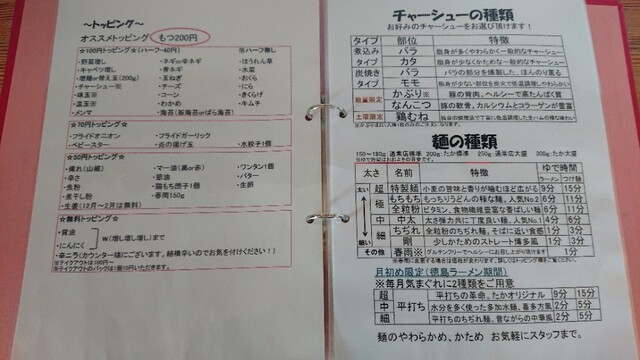 ～トッピング～
オススメトッピング もつ200円
☆100円トッピング☆(ハーフ-40円) ※ハーフ無し
・野菜増し ・ネギor辛ネギ ・ほうれん草
・キャベツ増し ・青ネギ ・水菜
・増麺or替え玉(200g) ・玉ねぎ ・おくら
・チャーシュー※ ・チーズ ・にら
・味玉※ ・コーン ・きくらげ
・温玉※ ・わかめ ・キムチ
・メンマ ・海苔(板海苔orばら海苔)
☆70円トッピング☆
・フライドオニオン ・フライドガーリック
・ベビースター ・炎の揚げ玉 ・水餃子1個
☆50円トッピング☆
・痺れ(山椒) ・マー油(黒or赤) ・ワンタン1個
・辛さ ・節油 ・バター
・魚粉 ・鶏もも団子1個 ・生卵
・煮干し粉 ・春雨150g
・生姜(12月～2月は無料)
☆無料トッピング☆
・背油
・にんにく
w(増し増し増し)まで
・辛ニラ(カウンター横にございます。結構辛いのでお気を付けください!)
チャーシューの種類
お好みのチャーシューをお選び頂けます!
タイプ 部位 特徴
煮込み バラ 脂身が多くやわらかく一般的なチャーシュー
タイプ カタ 脂身が少なくかための一般的なチャーシュー
炭焼き バラ バラの部分を燻製した、ほんのり薫る
タイプ モモ
数量限定 かぶり※ 豚の背肉。ヘルシーで高たんぱく質
なんこつ 豚の軟骨。カルシウムとコラーゲンが豊富
土夜限定 鶏むね
麺の種類
150～180g:通常店標準 200g:たか標準 250g:通常店大盛 300g:たか大盛
太さ 名称 特徴 ゆで時間
ラーメン つけ麺
太い 超 特製麺 小麦の旨味と香りが噛むほど広がる 9分 15分
極 もちもち もっちりうどんの様な麺。人気No.2 6分 11分
全粒粉 ビタミン、食物繊維豊富な香ばしい麺 6分 11分
中 中太 太さ弾力共に丁度良い麺。人気No.1 4分 6分
細 ちぢれ 全粒粉のちぢれ麺。そばに近い食感 1分 3分
細い 剛 少しかためのストレート博多風 1分 3分
その他 春雨※ グルテンフリーでヘルシーにお召し上がり頂けます 1分
月初め限定(徳島ラーメン期間)
※毎月気まぐれに2種類をご用意
超 平打ち 平打ちの革命。たかオリジナル 9分 15分
中 水分を多く使った多加水麺、喜多方風 2分 5分
細 平打ちのちぢれ麺。昔ながらの中華風 2分 5分
麺のやわらかめ、かため お気軽にスタッフまで。